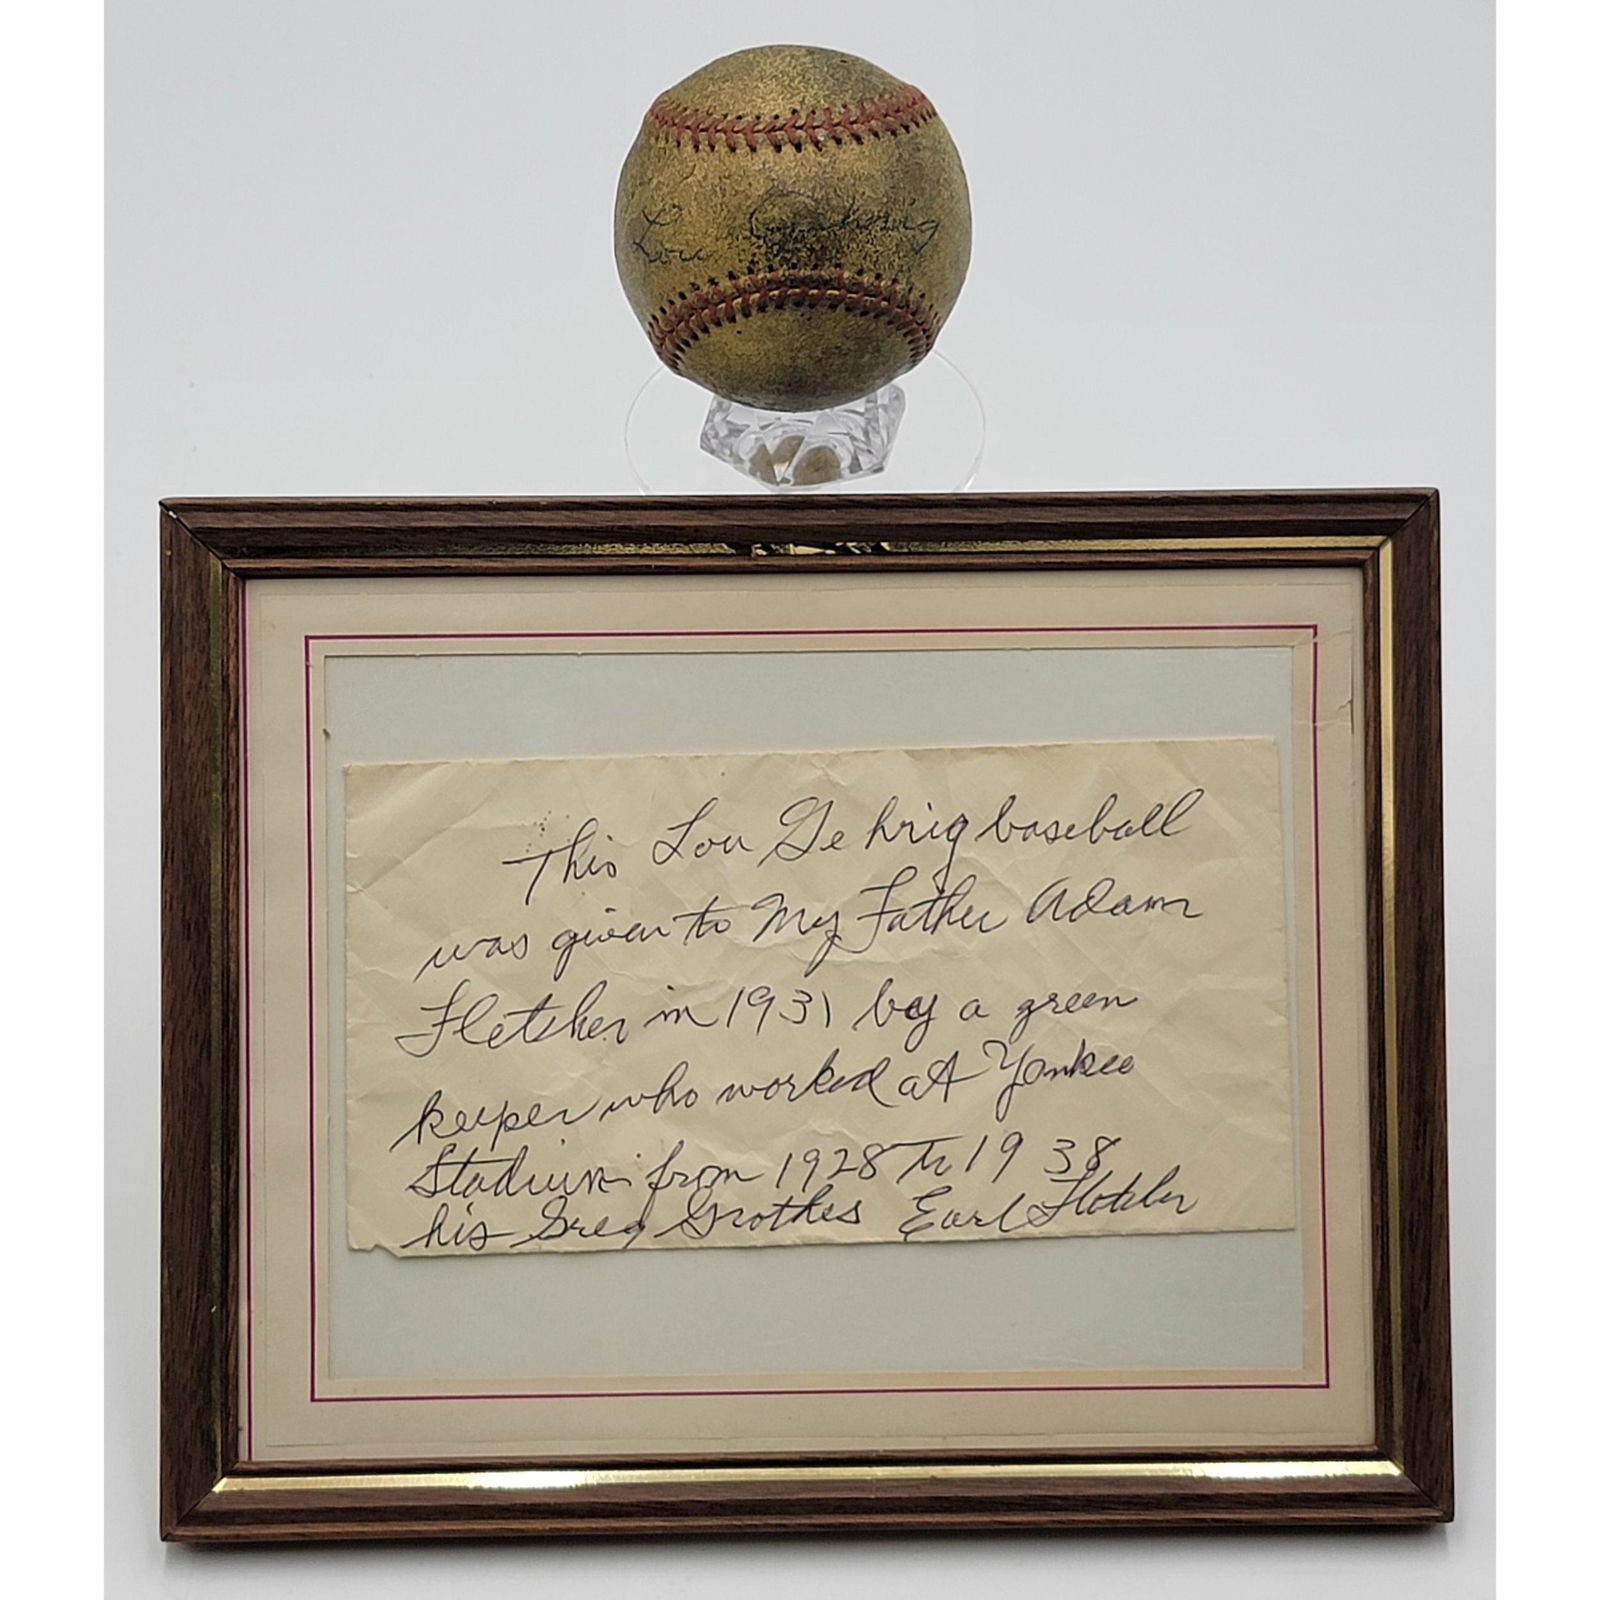 Lou Gehrig
This Lou Gehrig baseball
was given to My Father Adam
Fletcher in 1931 by a green
keeper who worked at Yankee
Stadium from 1928 to 1938
his Greg Grothes Earl Fletcher